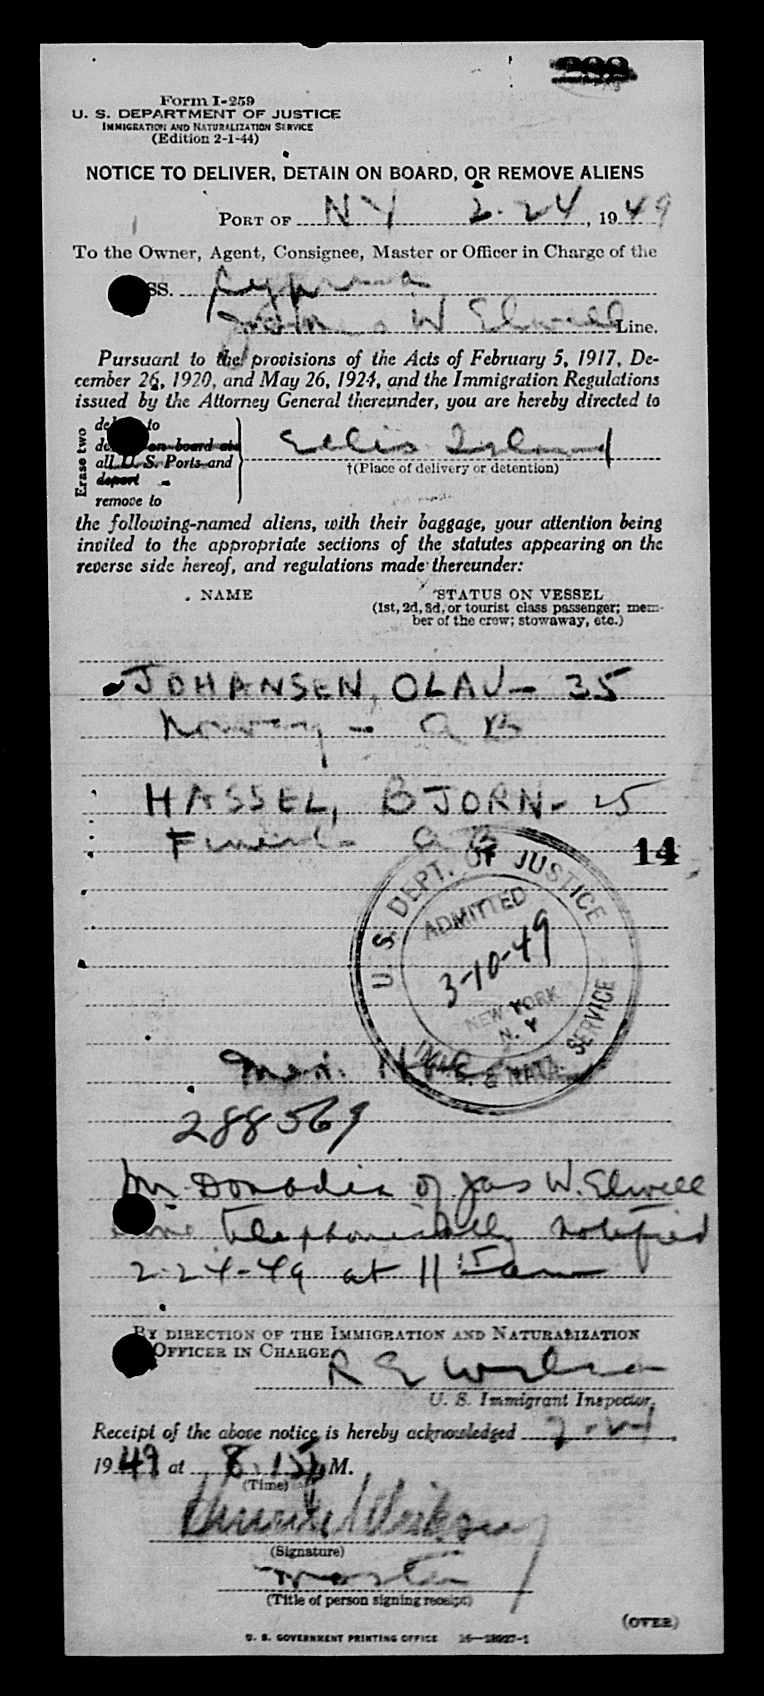 Form I-259
U. S. DEPARTMENT OF JUSTICE
IMMIGRATION AND NATURALIZATION SERVICE
(Edition 2-1-44)
NOTICE TO DELIVER, DETAIN ON BOARD, OR REMOVE ALIENS
PORT OF NY 2-24, 1949
To the Owner, Agent, Consignee, Master or Officer in Charge of the
SS. Cypria
James W Elwell Line.
Pursuant to the provisions of the Acts of February 5, 1917, De-
cember 26, 1920, and May 26, 1924, and the Immigration Regulations
issued by the Attorney General thereunder, you are hereby directed to
Erase two
to
on board at
all U. S. Ports and
deport
remove to
Ellis Island
†(Place of delivery or detention)
the following-named aliens, with their baggage, your attention being
invited to the appropriate sections of the statutes appearing on the
reverse side hereof, and regulations made thereunder:
NAME
STATUS ON VESSEL
(1st, 2d, 3d, or tourist class passenger; mem-
ber of the crew; stowaway, etc.)
JOHANSEN, OLAV - 35
Norway - AB
HASSEL, BJORN - 25
AB
14
U. S. DEPT. OF JUSTICE
ADMITTED
3-10-49
NEW YORK
N. Y.
IMMIG. & NATZ. SERVICE
288569
Mr of Jas W. Elwell
Line telephonically notified
2-24-49 at 11 15 am
BY DIRECTION OF THE IMMIGRATION AND NATURALIZATION
OFFICER IN CHARGE
R E Wilson
U. S. Immigrant Inspector.
Receipt of the above notice is hereby acknowledged 2-24,
1949 at 8.15 M.
(Time)
(Signature)
Master
(Title of person signing receipt)
(OVER)
U. S. GOVERNMENT PRINTING OFFICE 16-18927-1